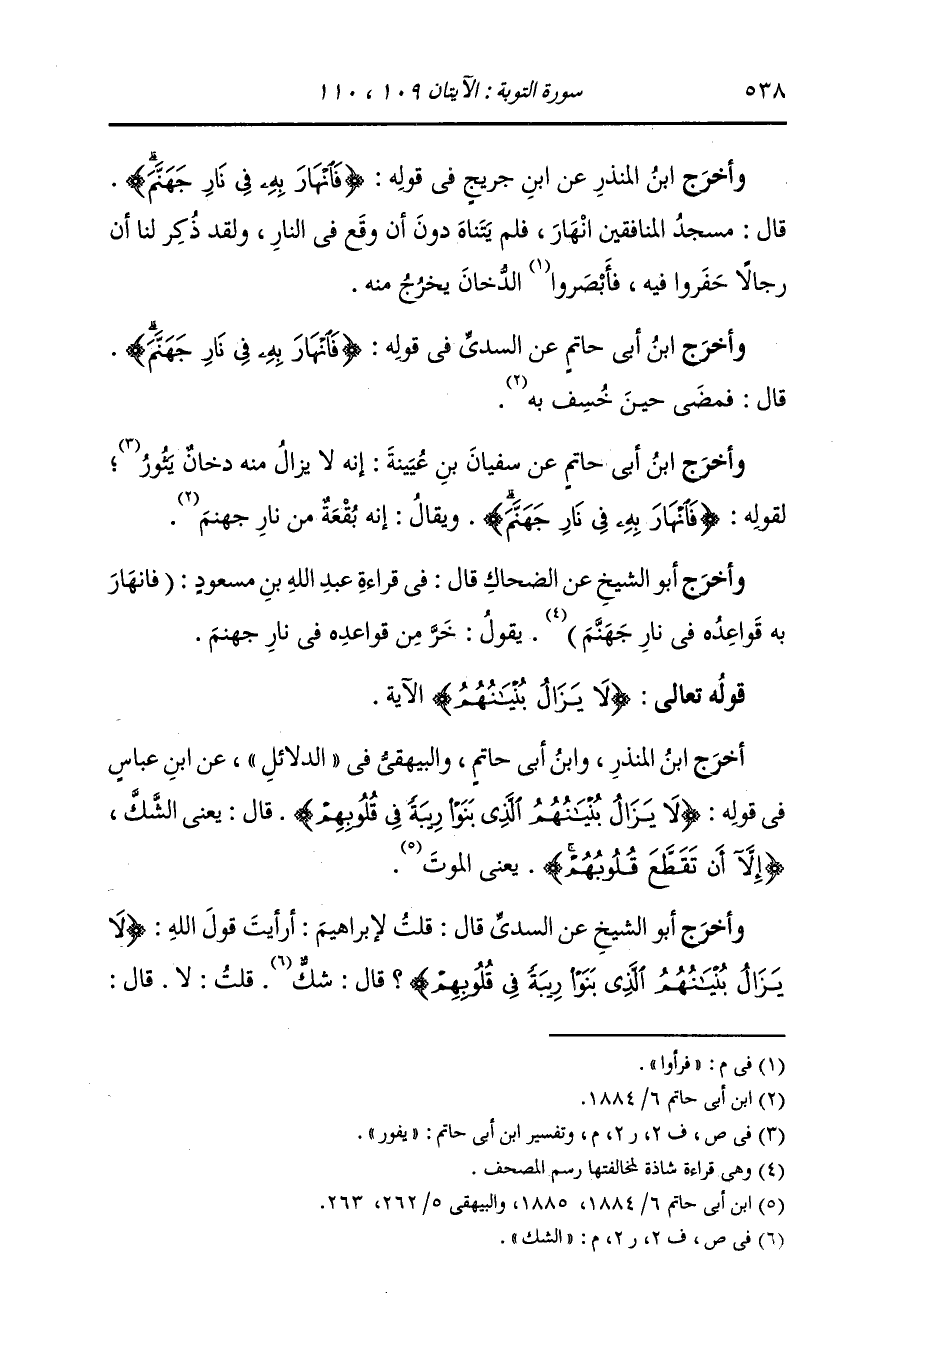 ٥٣٨ سورة التوبة : الآيتان ١٠٩ ، ١١٠
وأخرَج ابنُ المنذرِ عن ابنِ جريجٍ فى قولِه : ﴿فَٱنْهَارَ بِهِۦ فِى نَارِ جَهَنَّمَۗ﴾ .
قال : مسجدُ المنافقين انْهَارَ ، فلم يَتَناهَ دونَ أن وقَع فى النارِ ، ولقد ذُكِر لنا أن
رجالًا حَفَروا فيه ، فأَبْصَروا(١) الدُّخانَ يخرُجُ منه .
وأخرَج ابنُ أبى حاتمٍ عن السدىِّ فى قولِه : ﴿فَٱنْهَارَ بِهِۦ فِى نَارِ جَهَنَّمَۗ﴾ .
قال : فمضَى حينَ خُسِف به(٢).
وأخرَج ابنُ أبى حاتمٍ عن سفيانَ بنِ عُيَينةَ : إنه لا يزالُ منه دخانٌ يَثُورُ(٣)؛
لقولِه : ﴿فَٱنْهَارَ بِهِۦ فِى نَارِ جَهَنَّمَۗ﴾ . ويقالُ : إنه بُقْعَةٌ من نارِ جهنمَ(٢).
وأخرَج أبو الشيخِ عن الضحاكِ قال : فى قراءةِ عبدِ اللهِ بنِ مسعودٍ : ( فانهَارَ
به قَواعِدُه فى نارِ جَهَنَّمَ )(٤) . يقولُ : خَرَّ مِن قواعدِه فى نارِ جهنمَ .
قولُه تعالى : ﴿لَا يَزَالُ بُنْيَـٰنُهُمُ﴾ الآية .
أخرَج ابنُ المنذرِ ، وابنُ أبى حاتمٍ ، والبيهقىُّ فى « الدلائلِ » ، عن ابنِ عباسٍ
فى قولِه : ﴿لَا يَزَالُ بُنْيَـٰنُهُمُ ٱلَّذِى بَنَوْا۟ رِيبَةً فِى قُلُوبِهِمْ﴾ . قال : يعنى الشَّكَّ ،
﴿إِلَّآ أَن تَقَطَّعَ قُلُوبُهُمْۚ﴾ . يعنى الموتَ(٥).
وأخرَج أبو الشيخِ عن السدىِّ قال : قلتُ لإبراهيمَ : أرأيتَ قولَ اللهِ : ﴿لَا
يَزَالُ بُنْيَـٰنُهُمُ ٱلَّذِى بَنَوْا۟ رِيبَةً فِى قُلُوبِهِمْ﴾ ؟ قال : شكٌّ(٦). قلتُ : لا . قال :
(١) فى م : « فرأوا » .
(٢) ابن أبى حاتم ٦/ ١٨٨٤.
(٣) فى ص ، ف ٢، ر ٢، م ، وتفسير ابن أبى حاتم : « يفور » .
(٤) وهى قراءة شاذة لمخالفتها رسم المصحف .
(٥) ابن أبى حاتم ٦/ ١٨٨٤، ١٨٨٥، والبيهقى ٥/ ٢٦٢، ٢٦٣.
(٦) فى ص ، ف ٢، ر ٢، م : « الشك » .